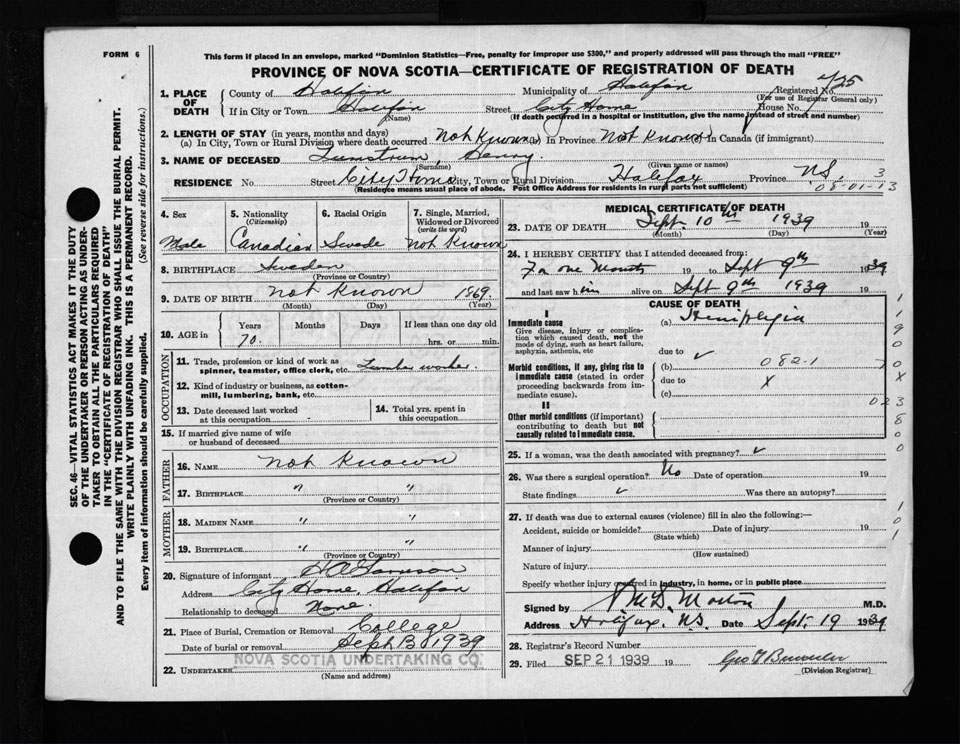 FORM 6
This form if placed in an envelope, marked "Dominion Statistics—Free, penalty for improper use $300," and properly addressed will pass through the mail "FREE"
PROVINCE OF NOVA SCOTIA—CERTIFICATE OF REGISTRATION OF DEATH
1. PLACE OF DEATH
County of Halifax Municipality of Halifax Registered No. 425
(For use of Registrar General only)
If in City or Town Halifax Street City Home House No.
(Name) (If death occurred in a hospital or institution, give the name instead of street and number)
2. LENGTH OF STAY (in years, months and days)
(a) In City, Town or Rural Division where death occurred Not Known In Province Not Known In Canada (if immigrant)
3. NAME OF DECEASED Lunstrum, Henry.
(Surname) (Given name or names)
RESIDENCE No. Street City Home City, Town or Rural Division Halifax Province N.S. 3
(Residence means usual place of abode. Post Office Address for residents in rural parts not sufficient) 08-01-13
4. Sex
Male
5. Nationality
(Citizenship)
Canadian
6. Racial Origin
Swede
7. Single, Married, Widowed or Divorced
(write the word)
Not Known
8. BIRTHPLACE Sweden
(Province or Country)
9. DATE OF BIRTH Not Known 1869.
(Month) (Day) (Year)
10. AGE in
Years Months Days If less than one day old
70. hrs. or min.
OCCUPATION
11. Trade, profession or kind of work as spinner, teamster, office clerk, etc. Lumber worker.
12. Kind of industry or business, as cotton-mill, lumbering, bank, etc.
13. Date deceased last worked at this occupation
14. Total yrs. spent in this occupation
15. If married give name of wife or husband of deceased
FATHER
16. NAME Not Known
17. BIRTHPLACE " "
(Province or Country)
MOTHER
18. MAIDEN NAME " "
19. BIRTHPLACE " "
(Province or Country)
20. Signature of informant
Address City Home, Halifax
Relationship to deceased None.
21. Place of Burial, Cremation or Removal College
Date of burial or removal Sept 13 1939
22. UNDERTAKER NOVA SCOTIA UNDERTAKING CO.
(Name and address)
MEDICAL CERTIFICATE OF DEATH
23. DATE OF DEATH Sept. 10th 1939
(Month) (Day) (Year)
24. I HEREBY CERTIFY that I attended deceased from:
For one Month 19 to Sept 9th 1939
and last saw him alive on Sept 9th 1939
CAUSE OF DEATH
I
Immediate cause (a) Hemiplegia
Give disease, injury or complication which caused death, not the mode of dying, such as heart failure, asphyxia, asthenia, etc
due to
Morbid conditions, if any, giving rise to immediate cause (stated in order proceeding backwards from immediate cause). (b) 082-1
due to X
(c)
II
Other morbid conditions (if important) contributing to death but not causally related to immediate cause.
25. If a woman, was the death associated with pregnancy?
26. Was there a surgical operation? No Date of operation 19
State findings Was there an autopsy?
27. If death was due to external causes (violence) fill in also the following:—
Accident, suicide or homicide? Date of injury 19
(State which)
Manner of injury
(How sustained)
Nature of injury
Specify whether injury occurred in industry, in home, or in public place
Signed by Morton M.D.
Address Halifax, N.S. Date Sept. 19 1939
28. Registrar's Record Number
29. Filed SEP 21 1939 19
(Division Registrar)
SEC. 46—VITAL STATISTICS ACT MAKES IT THE DUTY
OF THE UNDERTAKER OR PERSON ACTING AS UNDER-
TAKER TO OBTAIN ALL THE PARTICULARS REQUIRED
IN THE "CERTIFICATE OF REGISTRATION OF DEATH"
AND TO FILE THE SAME WITH THE DIVISION REGISTRAR WHO SHALL ISSUE THE BURIAL PERMIT.
WRITE PLAINLY WITH UNFADING INK. THIS IS A PERMANENT RECORD.
Every item of information should be carefully supplied. (See reverse side for instructions.)